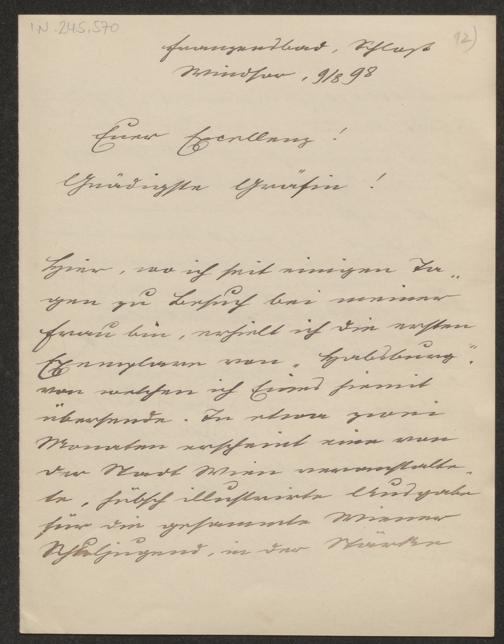 IN. 245.570
92)
Franzensbad, Schloß
Windsor, 9/8 98
Euer Excellenz!
Gnädigste Gräfin!
Hier, wo ich seit einigen Ta„
gen zu Besuch bei meiner
Frau bin, erhielt ich die ersten
Exemplare von „Habsburg",
von welchen ich Eines hiemit
übersende. In etwa zwei
Monaten erscheint eine von
der Stadt Wien veranstalte„
te, hübsch illustrirte Ausgabe
für die gesammte Wiener
Schuljugend, in der Stärke